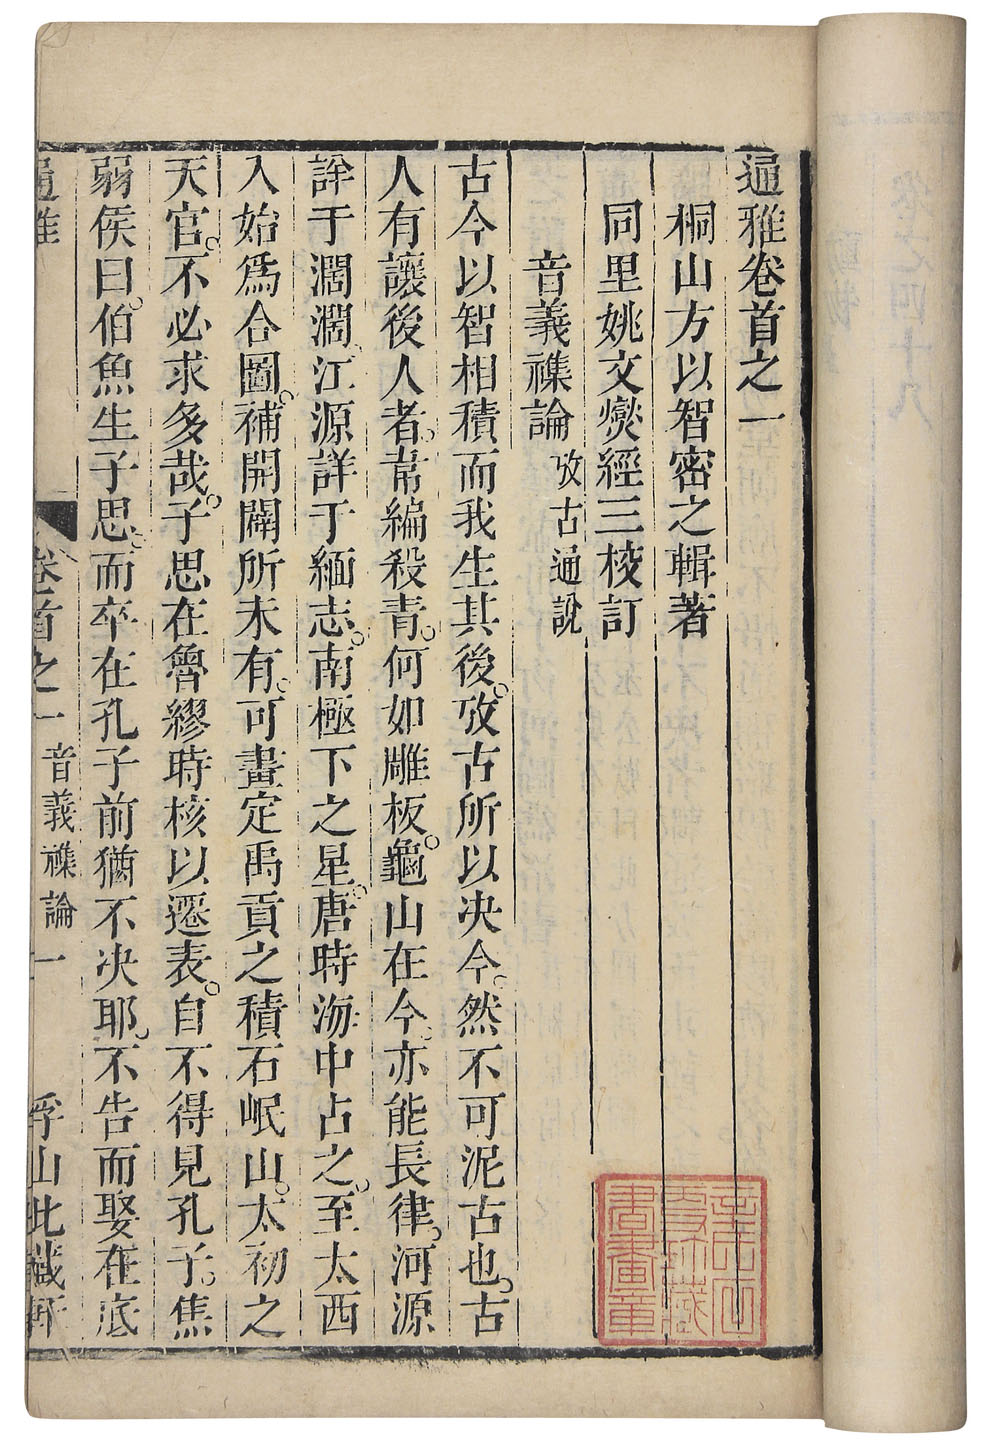 通雅卷首之一
桐山方以智密之輯著
同里姚文燮經三校訂
音義雜論 攷古通說
古今以智相積而我生其後。攷古所以决今。然不可泥古也。古
人有讓後人者。韋編殺青。何如雕板。龜山在今。亦能長律。河源
詳于濶濶。江源詳于緬志。南極下之星。唐時海中占之。至太西
入始爲合圖。補開闢所未有。可畫定禹貢之積石岷山。太初之
天官。不必求多哉。子思在魯繆時核以遷表。自不得見孔子。焦
弱侯曰。伯魚生子思。而卒在孔子前猶不决耶。不告而娶在底
通雅 卷首之一 音義雜論 一 浮山此藏軒
書畫章